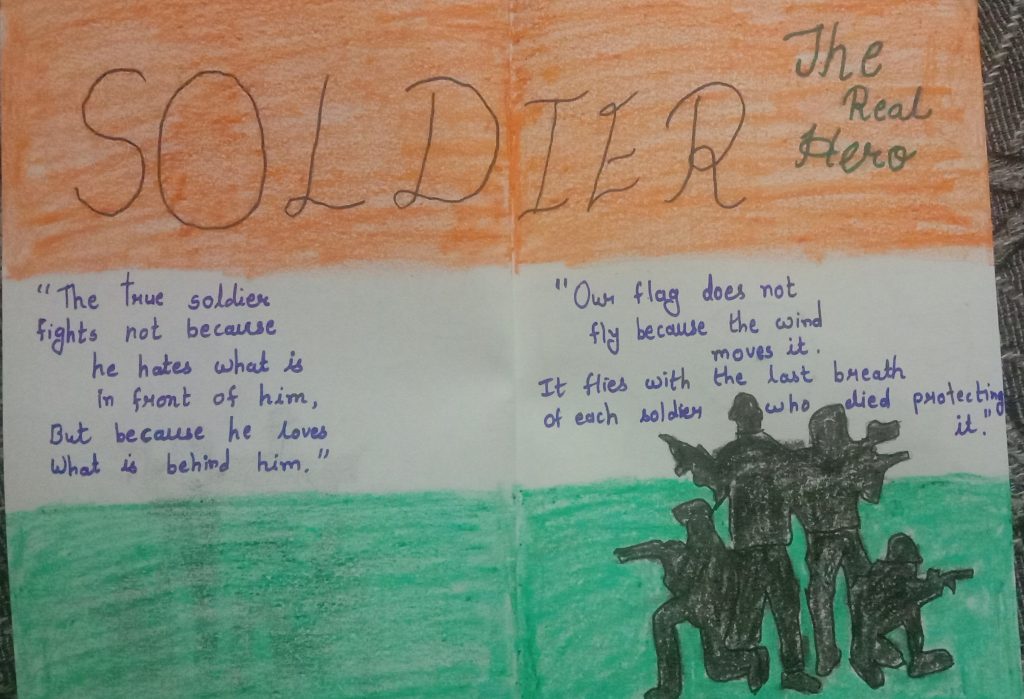 SOLDIER
The
Real
Hero
"The true soldier
fights not because
he hates what is
In front of him,
But because he loves
What is behind him."
"Our flag does not
fly because the wind
moves it.
It flies with the last breath
of each soldier who died protecting
it."